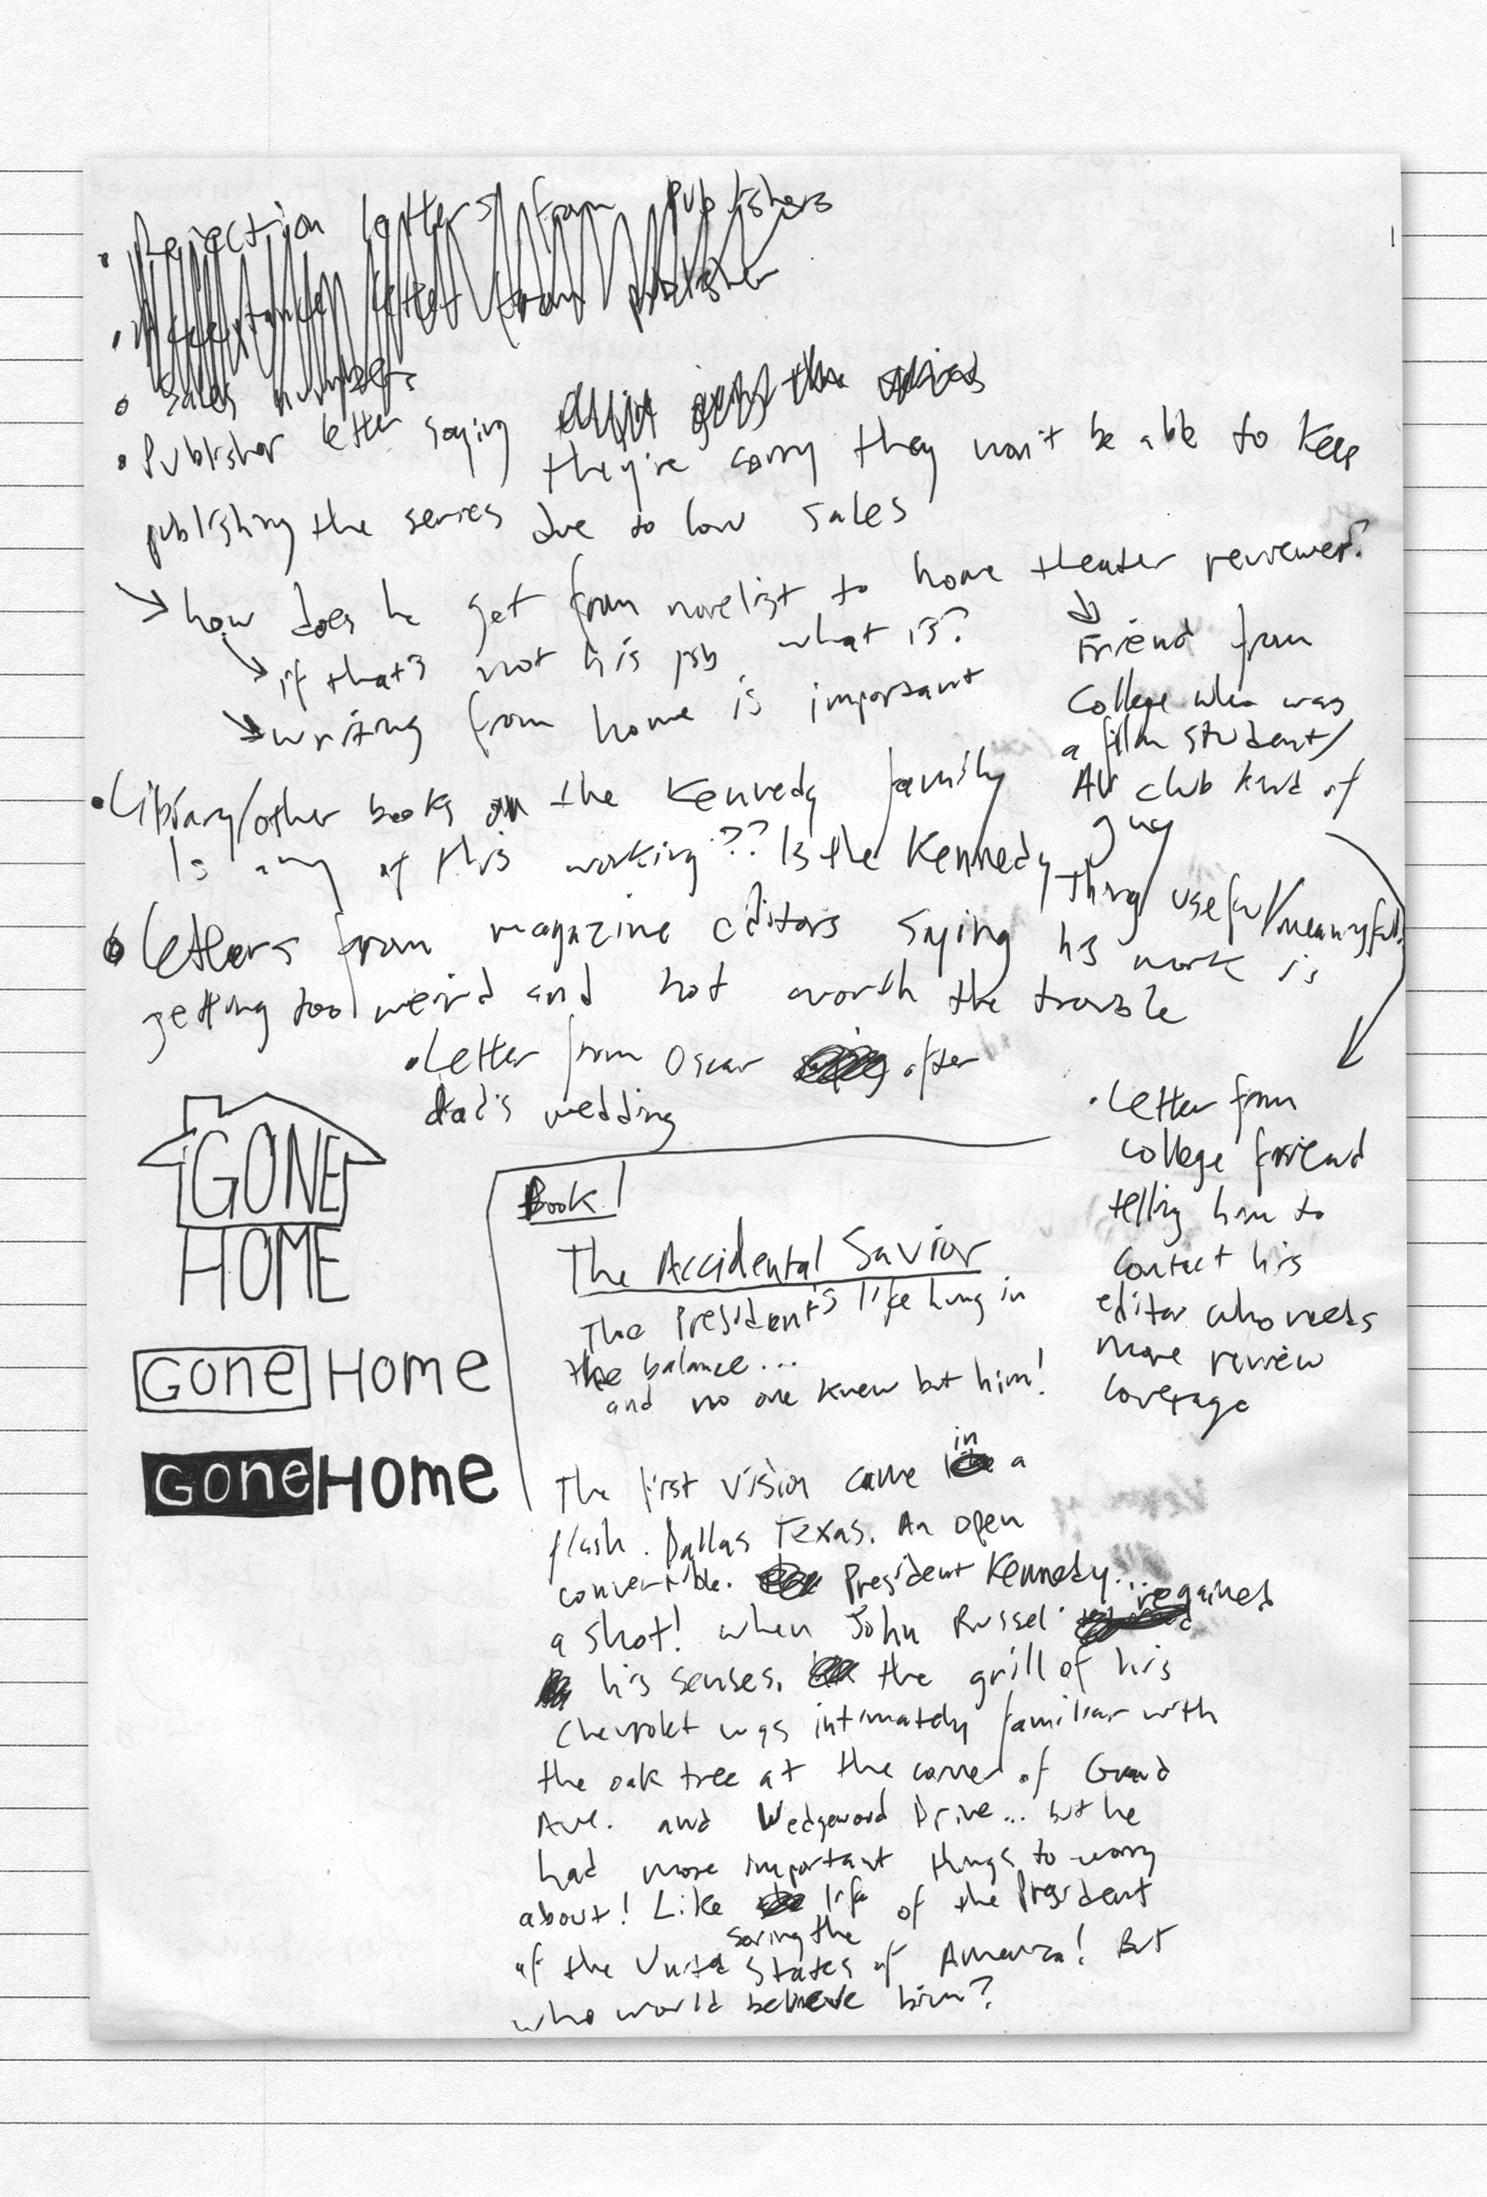 • Rejection letters from publishers
• Acceptance letter from publisher
• Sales numbers
• Publisher letter saying
they're sorry they won't be able to keep
publishing the series due to low sales
how does he get from novelist to home theater reviewer?
if that's not his job what is?
writing from home is important
Friend from
college who was
a film student/
AV club kind of
guy
• Library/other books on the Kennedy family
Is any of this working?? Is the Kennedy thing useful/meaningful?
• Letters from magazine editors saying his work is
getting too weird and not worth the trouble
• Letter from Oscar after
dad's wedding
• Letter from
college friend
telling him to
contact his
editor who needs
more review
coverage
GONE
HOME
Gone Home
Gone Home
Book 1
The Accidental Savior
The President's life hung in
the balance...
and no one knew but him!
The first vision came in a
flash. Dallas Texas. An open
convertible. President Kennedy...
a shot! when John Russel regained
his senses, the grill of his
Chevrolet was intimately familiar with
the oak tree at the corner of Grand
Ave. and Wedgewood Drive... but he
had more important things to worry
about! Like saving the life of the President
of the United States of America! But
who would believe him?